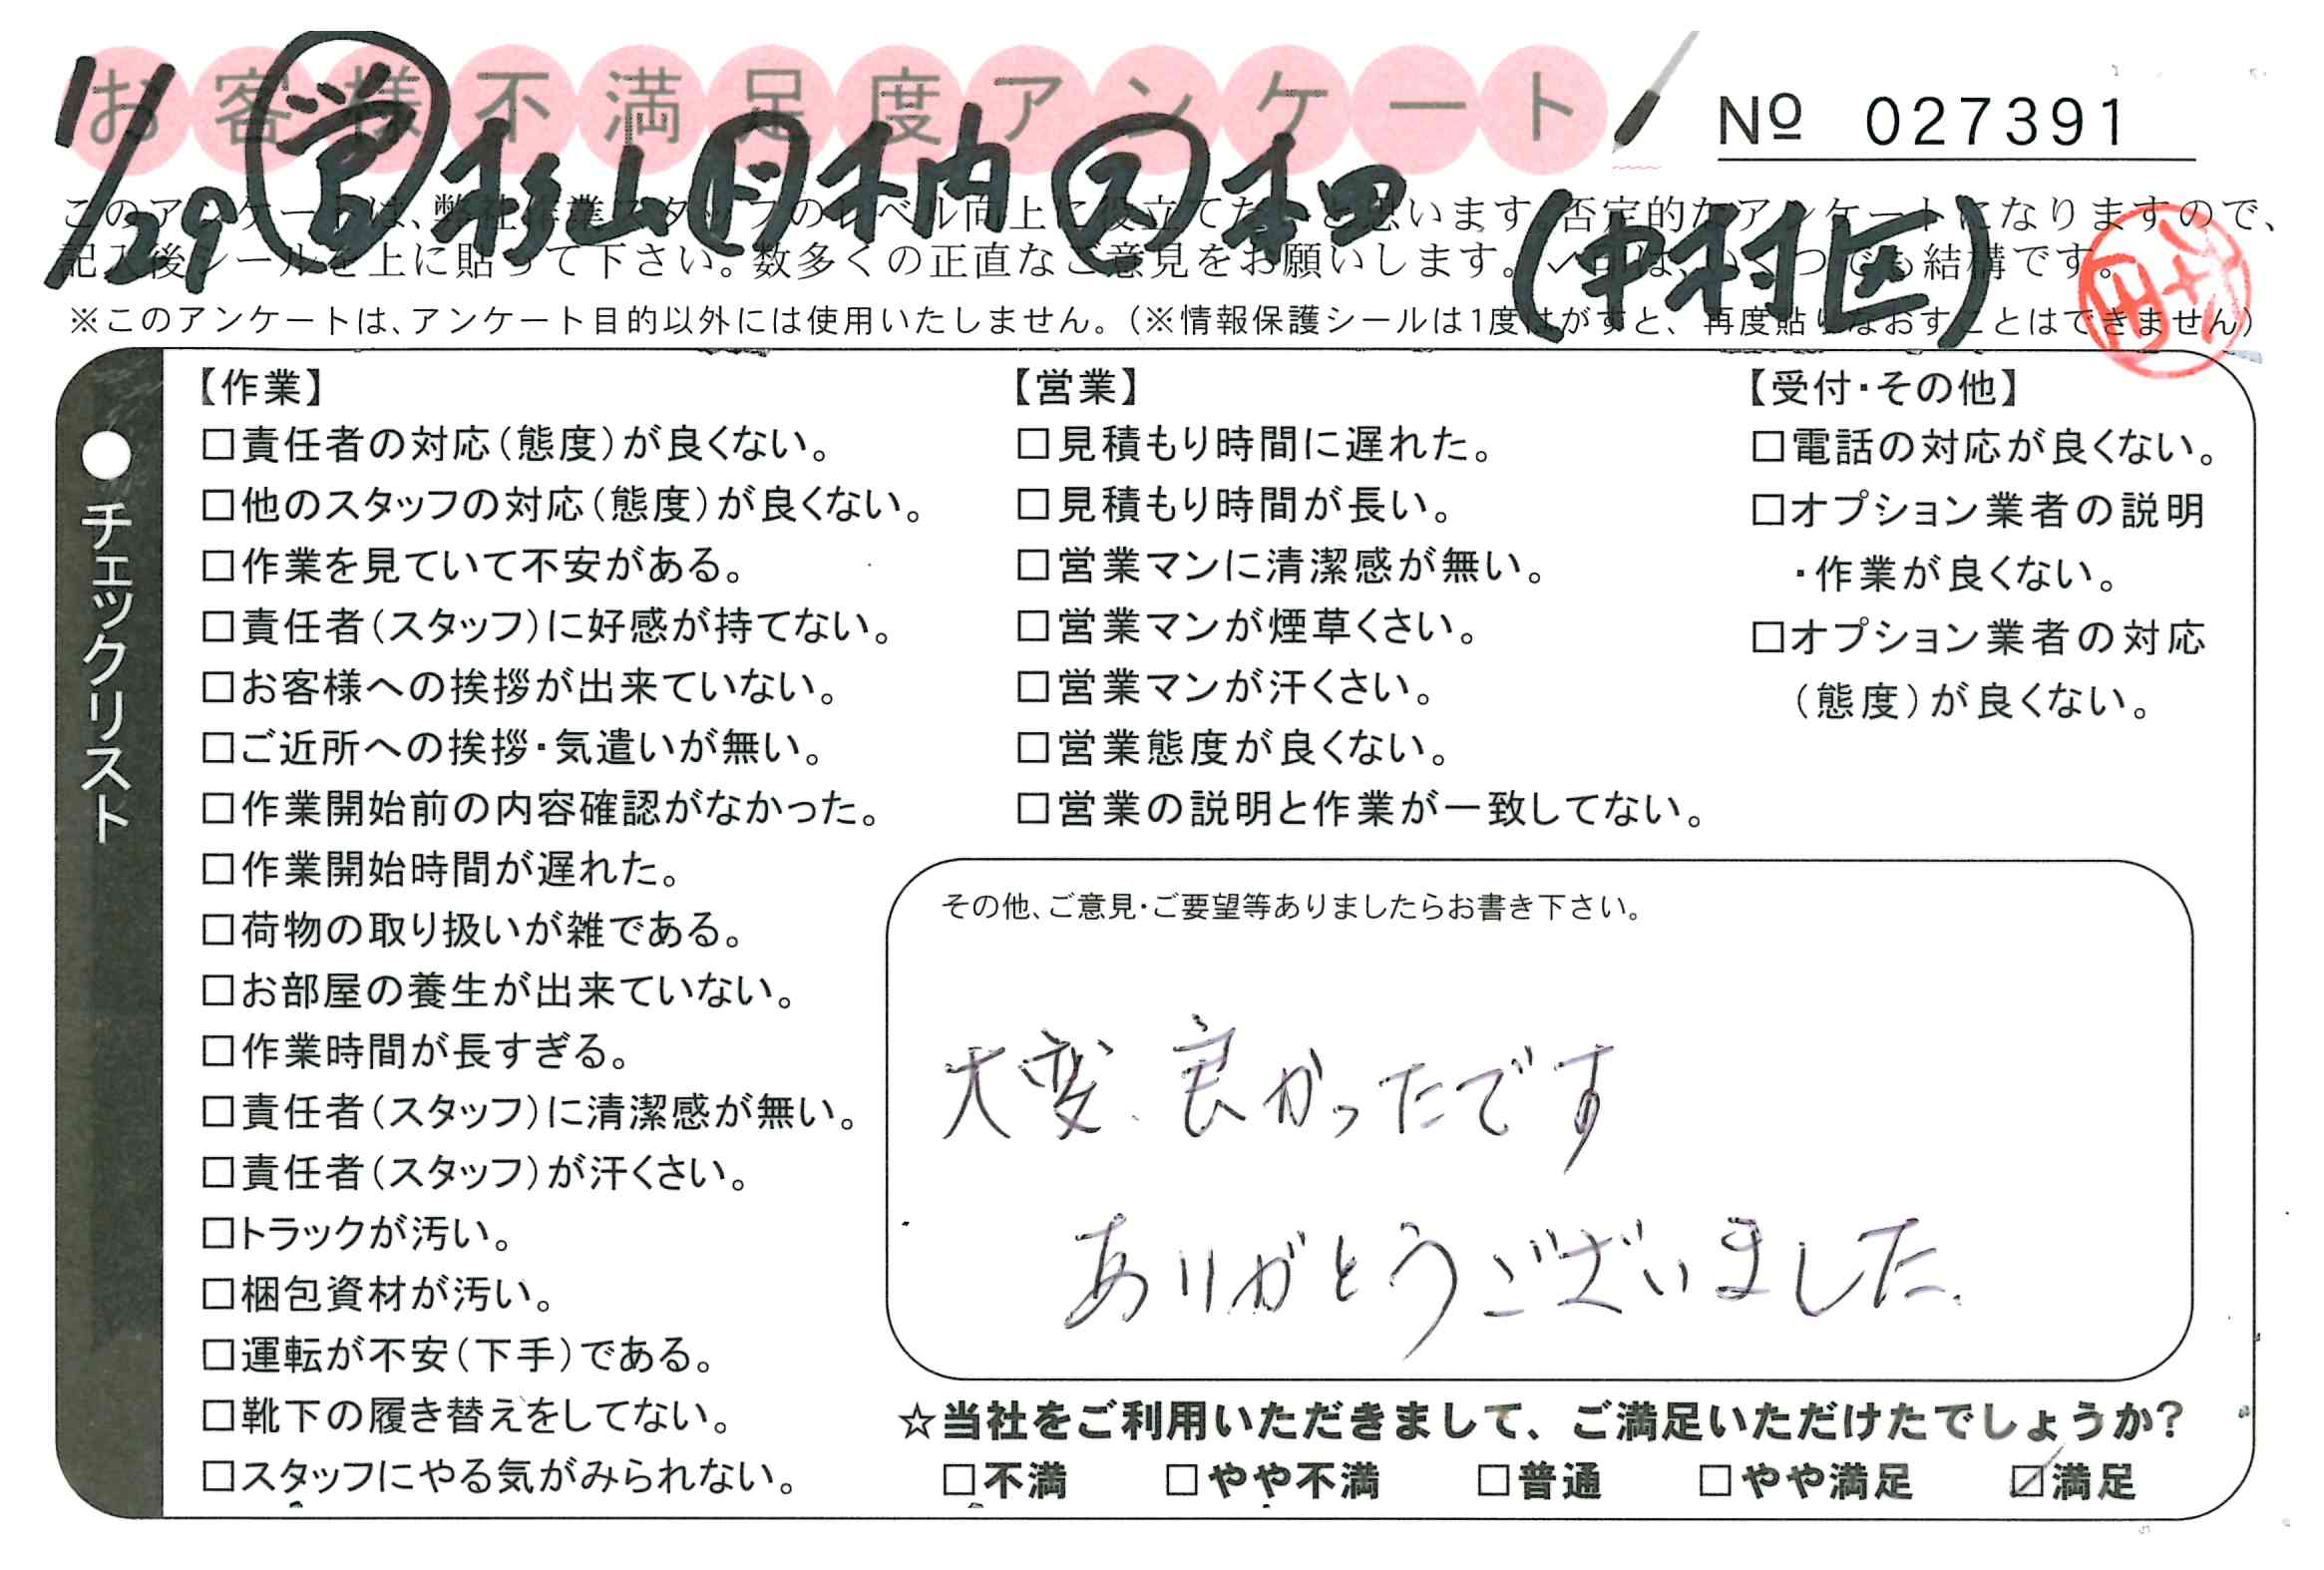 お客様不満足度アンケート
No 027391
1/29 営 杉山 ド 木内 ス 和田 (中村区)
このアンケートは、弊社作業スタッフのレベル向上に役立てたいと思います。否定的なアンケートになりますので、
記入後シールを上に貼って下さい。数多くの正直なご意見をお願いします。✓印は、いくつでも結構です。
※このアンケートは、アンケート目的以外には使用いたしません。(※情報保護シールは1度はがすと、再度貼りなおすことはできません)
●チェックリスト
【作業】
□責任者の対応(態度)が良くない。
□他のスタッフの対応(態度)が良くない。
□作業を見ていて不安がある。
□責任者(スタッフ)に好感が持てない。
□お客様への挨拶が出来ていない。
□ご近所への挨拶・気遣いが無い。
□作業開始前の内容確認がなかった。
□作業開始時間が遅れた。
□荷物の取り扱いが雑である。
□お部屋の養生が出来ていない。
□作業時間が長すぎる。
□責任者(スタッフ)に清潔感が無い。
□責任者(スタッフ)が汗くさい。
□トラックが汚い。
□梱包資材が汚い。
□運転が不安(下手)である。
□靴下の履き替えをしてない。
□スタッフにやる気がみられない。
【営業】
□見積もり時間に遅れた。
□見積もり時間が長い。
□営業マンに清潔感が無い。
□営業マンが煙草くさい。
□営業マンが汗くさい。
□営業態度が良くない。
□営業の説明と作業が一致してない。
【受付・その他】
□電話の対応が良くない。
□オプション業者の説明
・作業が良くない。
□オプション業者の対応
(態度)が良くない。
その他、ご意見・ご要望等ありましたらお書き下さい。
大変、良かったです
ありがとうございました.
☆当社をご利用いただきまして、ご満足いただけたでしょうか?
□不満 □やや不満 □普通 □やや満足 ☑満足